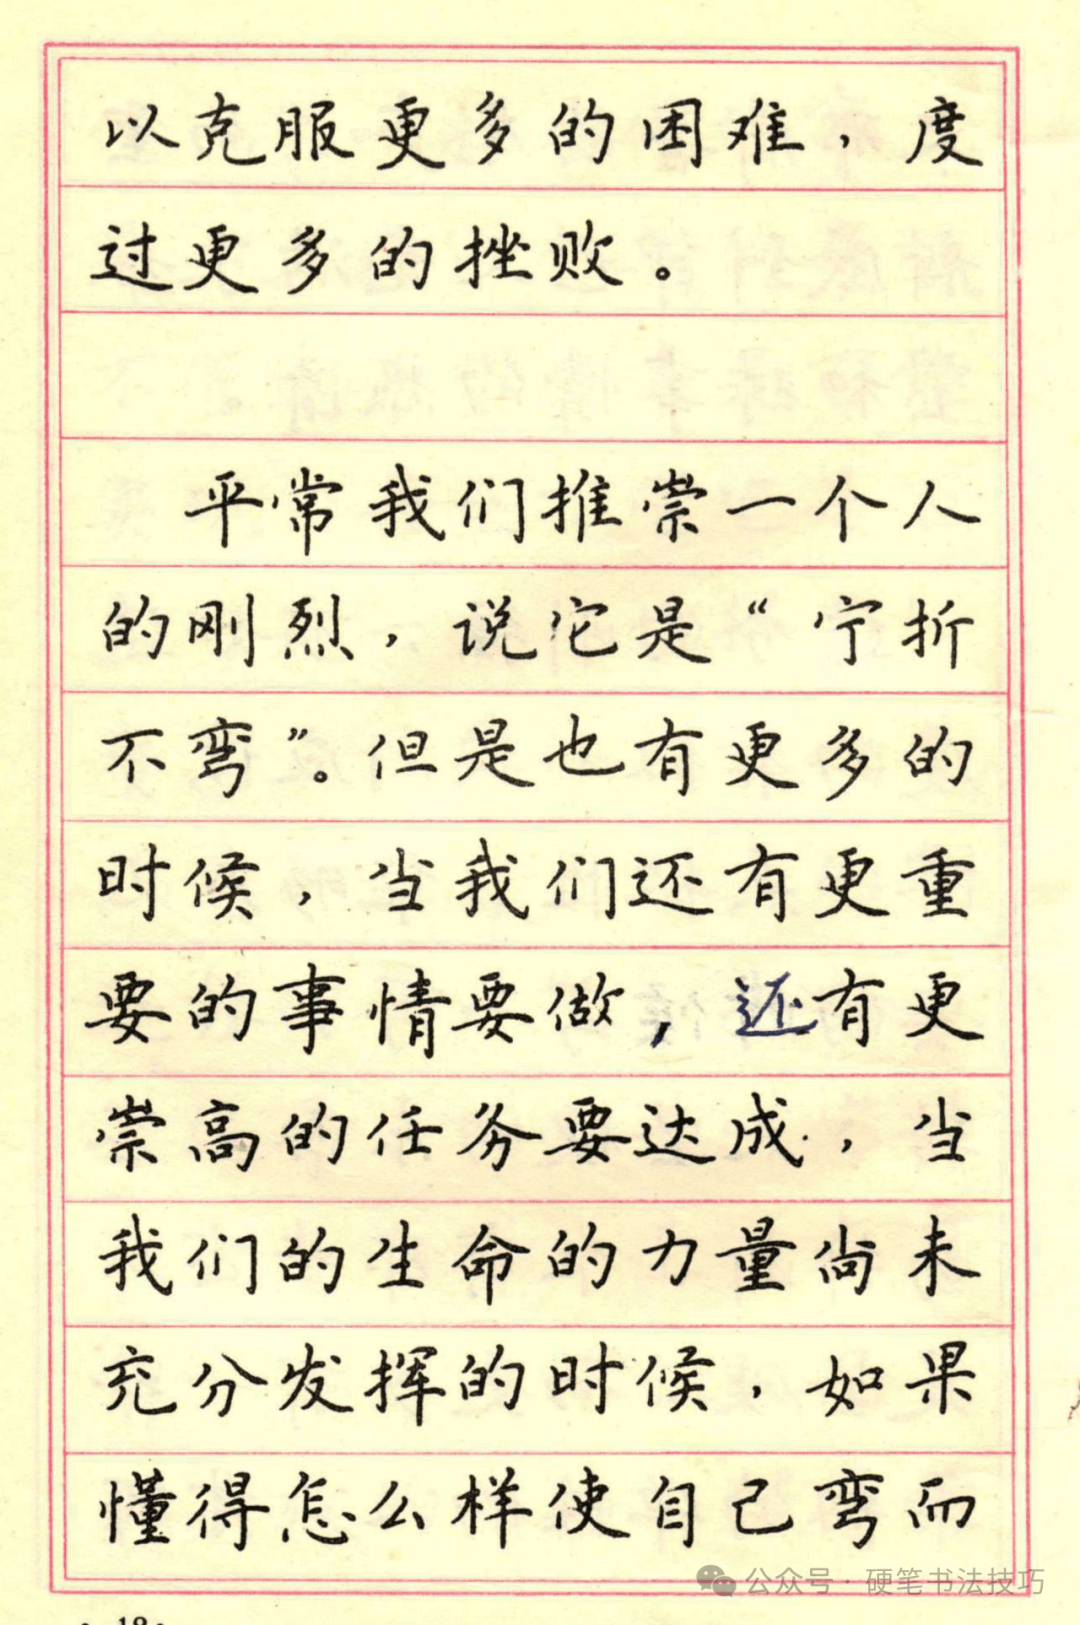 以克服更多的困难，度
过更多的挫败。
平常我们推崇一个人
的刚烈，说它是“宁折
不弯”。但是也有更多的
时候，当我们还有更重
要的事情要做，还有更
崇高的任务要达成，当
我们的生命的力量尚未
充分发挥的时候，如果
懂得怎么样使自己弯而
公众号·硬笔书法技巧